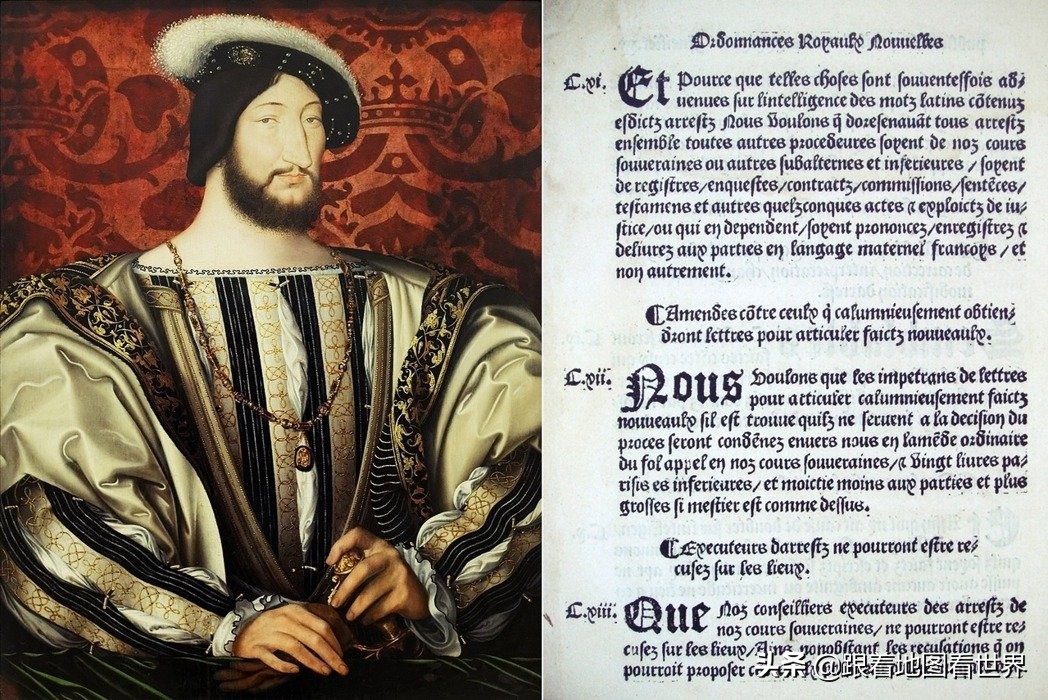 Ordonnances Royaulx Nouuelles
C.xi. Et Pource que telles choses sont souuenteffois ad⸗
uenues sur lintelligence des motz latins cõtenuz
esdictz arrestz Nous Voulons q̃ doresenauãt tous arrestz
ensemble toutes autres procedeures soyent de noz cours
souueraines ou autres subalternes et inferieures / soyent
de registres/enquestes/contractz/commissions/sentẽces/
testamens et autres quelzconques actes ⁊ exploictz de iu⸗
stice/ou qui en dependent/soyent prononcez/enregistrez ⁊
deliurez aux parties en langage maternel francoys / et
non autrement.
¶Amendes cõtre ceulx q̃ calumnieusement obtien⸗
dront lettres pour articuler faictz nouueaulx.
C.xii. Nous Voulons que les impetrans de lettres
pour articuler calumnieusement faictz
nouueaulx sil est trouue quilz ne seruent a la decision du
proces seront condẽnez enuers nous en lamẽde ordinaire
du fol appel en noz cours souueraines/⁊ Vingt liures pa⸗
risis es inferieures/ et moictie moins aux parties et plus
grosses si mestier est comme dessus.
¶Executeurs darrestz ne pourront estre re⸗
cusez sur les lieux.
C.xiii. Que Noz conseilliers executeurs des arrestz de
noz cours souueraines/ ne pourront estre re⸗
cusez sur les lieux/Ains nonobstant les recusations q̃ on
pourroit proposer
头条 @跟着地图看世界